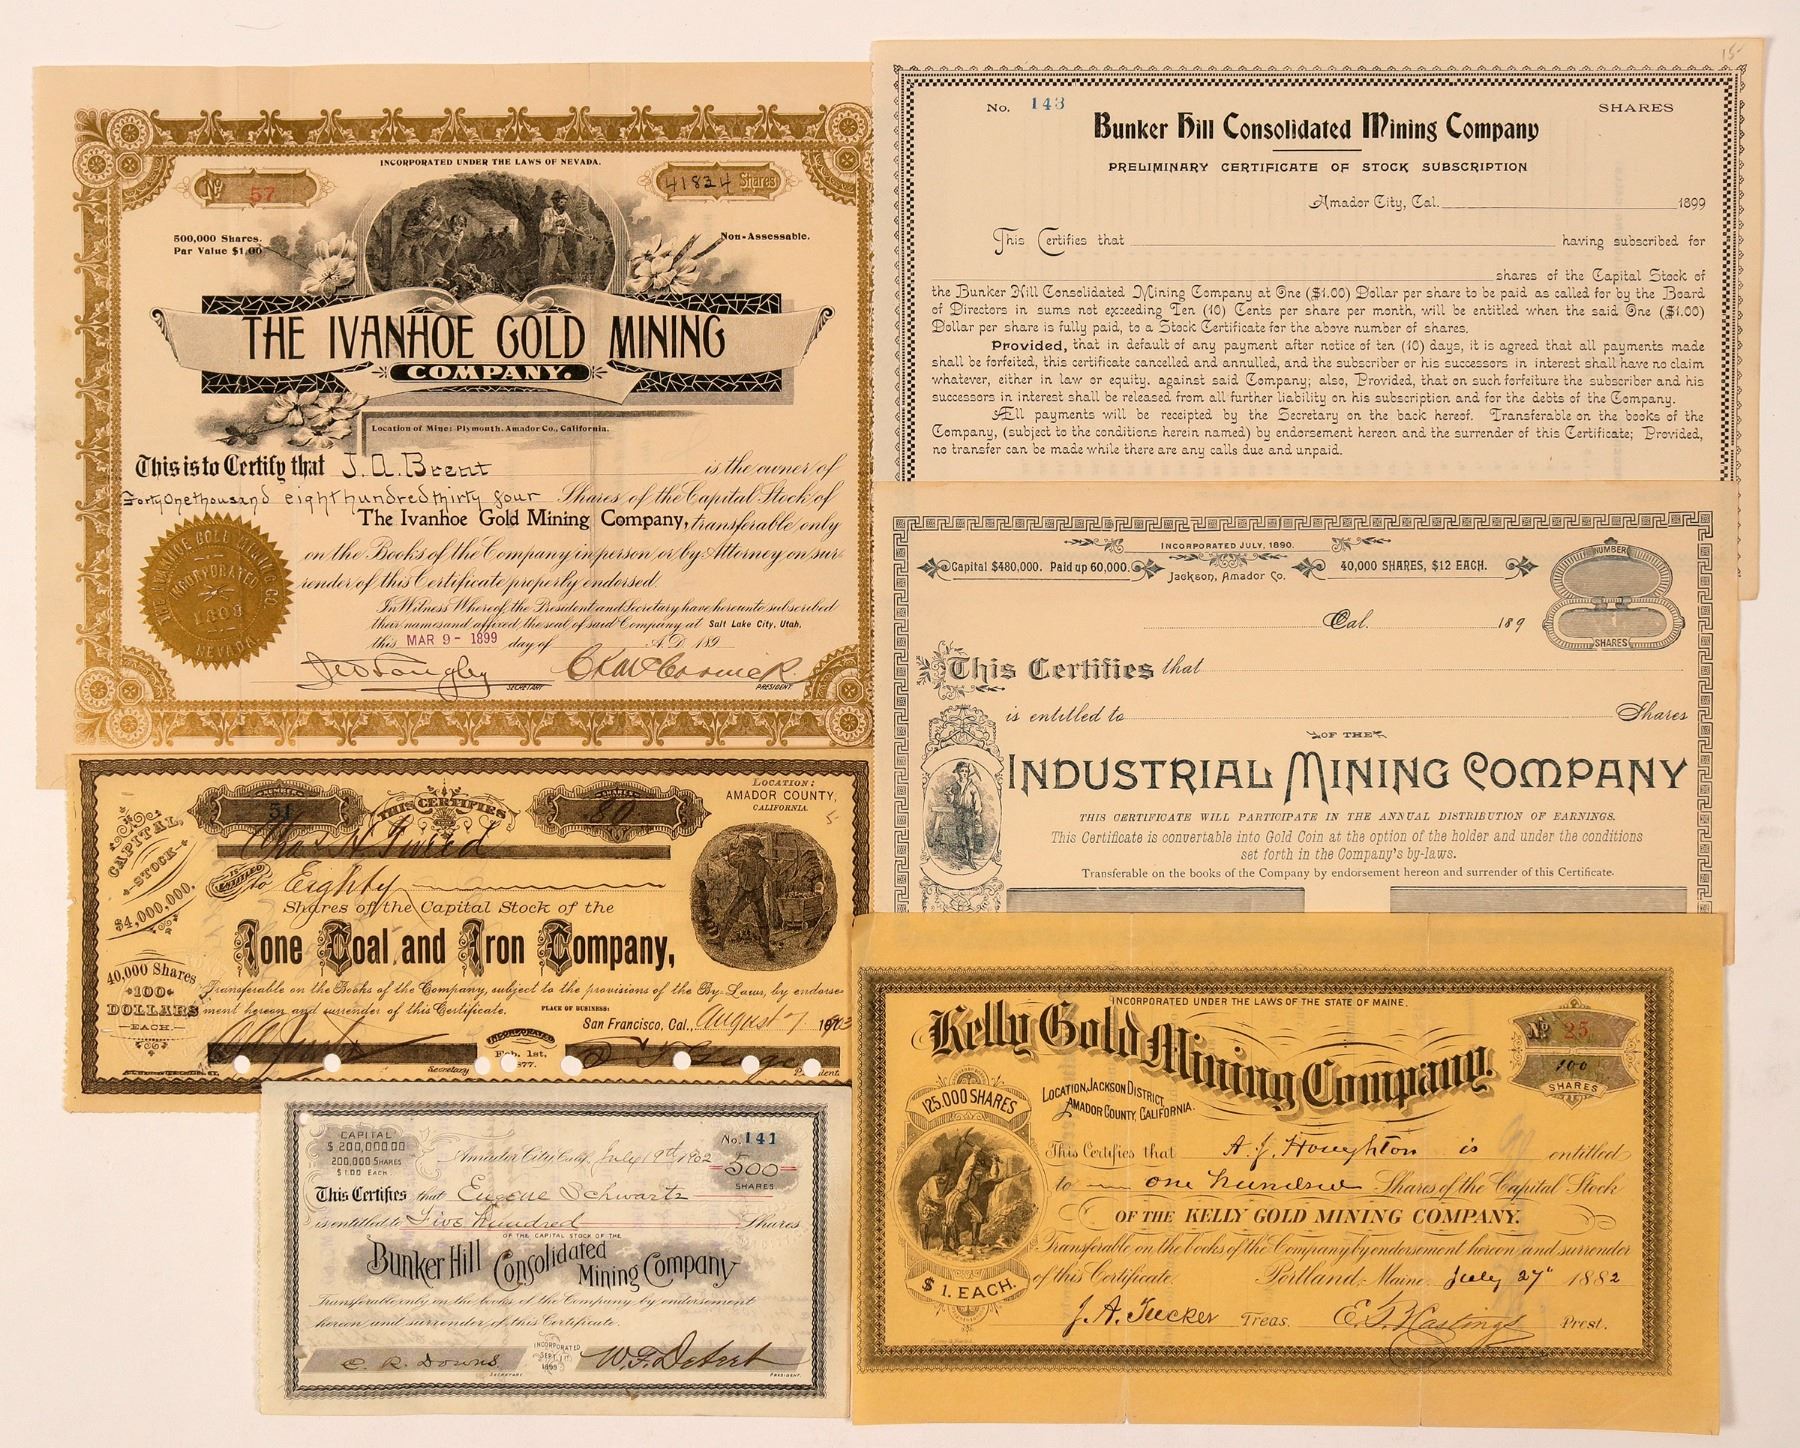 INCORPORATED UNDER THE LAWS OF NEVADA.
No 57
41834 Shares
500,000 Shares.
Par Value $1.00
Non-Assessable.
THE IVANHOE GOLD MINING
COMPANY.
Location of Mine: Plymouth, Amador Co., California.
This is to Certify that J. A. Brent is the owner of
Forty One thousand eight hundred thirty four Shares of the Capital Stock of
The Ivanhoe Gold Mining Company, transferable only
on the Books of the Company in person or by Attorney on sur-
render of this Certificate properly endorsed.
In Witness Whereof, the President and Secretary have hereunto subscribed
their names and affixed the seal of said Company at Salt Lake City, Utah,
this MAR 9 - 1899 day of A.D. 189
SECRETARY
PRESIDENT
THE IVANHOE GOLD MINING CO.
INCORPORATED
1898
NEVADA
15
No. 143
SHARES
Bunker Hill Consolidated Mining Company
PRELIMINARY CERTIFICATE OF STOCK SUBSCRIPTION
Amador City, Cal. 1899
This Certifies that having subscribed for
shares of the Capital Stock of
the Bunker Hill Consolidated Mining Company at One ($1.00) Dollar per share to be paid as called for by the Board
of Directors in sums not exceeding Ten (10) Cents per share per month, will be entitled when the said One ($1.00)
Dollar per share is fully paid, to a Stock Certificate for the above number of shares.
Provided, that in default of any payment after notice of ten (10) days, it is agreed that all payments made
shall be forfeited, this certificate cancelled and annulled, and the subscriber or his successors in interest shall have no claim
whatever, either in law or equity, against said Company; also, Provided, that on such forfeiture the subscriber and his
successors in interest shall be released from all further liability on his subscription and for the debts of the Company.
All payments will be receipted by the Secretary on the back hereof. Transferable on the books of the
Company, (subject to the conditions herein named) by endorsement hereon and the surrender of this Certificate; Provided,
no transfer can be made while there are any calls due and unpaid.
INCORPORATED JULY, 1890.
Capital $480,000. Paid up 60,000.
Jackson, Amador Co.
40,000 SHARES, $12 EACH.
NUMBER
SHARES
Cal. 189
This Certifies that
is entitled to Shares
OF THE
INDUSTRIAL MINING COMPANY
THIS CERTIFICATE WILL PARTICIPATE IN THE ANNUAL DISTRIBUTION OF EARNINGS.
This Certificate is convertable into Gold Coin at the option of the holder and under the conditions
set forth in the Company's by-laws.
Transferable on the books of the Company by endorsement hereon and surrender of this Certificate.
CAPITAL
STOCK
$4,000,000.
40,000 Shares
100
DOLLARS
EACH.
NUMBER
51
THIS CERTIFIES
SHARES
80
LOCATION:
AMADOR COUNTY,
CALIFORNIA.
5
Chas. H. Tweed
IS ENTITLED
to Eighty
Shares of the Capital Stock of the
Ione Coal and Iron Company,
Transferable on the Books of the Company, subject to the provisions of the By-Laws, by endorse-
ment hereon and surrender of this Certificate.
PLACE OF BUSINESS:
San Francisco, Cal., August 7 1903
Secretary
INCORPORATED
Feb. 1st,
877.
CAPITAL
$ 200,000.00
200,000 SHARES
$ 1.00 EACH
Amador City, Calif. July 19th 1902
No. 141
500
SHARES
This Certifies that Eugene Schwartz
is entitled to Five hundred Shares
OF THE CAPITAL STOCK OF THE
Bunker Hill Consolidated Mining Company
Transferable only on the books of the Company by endorsement
hereon and surrender of this Certificate.
INCORPORATED
SEPT.
1899
C. R. Downs
SECRETARY
W. F. Detert
PRESIDENT
INCORPORATED UNDER THE LAWS OF THE STATE OF MAINE.
Kelly Gold Mining Company.
No 25
100
SHARES
LOCATION, JACKSON DISTRICT
AMADOR COUNTY, CALIFORNIA.
125,000 SHARES
$ 1. EACH.
This Certifies that A. J. Houghton is entitled
to one hundred Shares of the Capital Stock
OF THE KELLY GOLD MINING COMPANY.
Transferable on the books of the Company by endorsement hereon and surrender
of this Certificate. Portland, Maine. July 27" 1882
J. A. Tucker Treas. Prest.